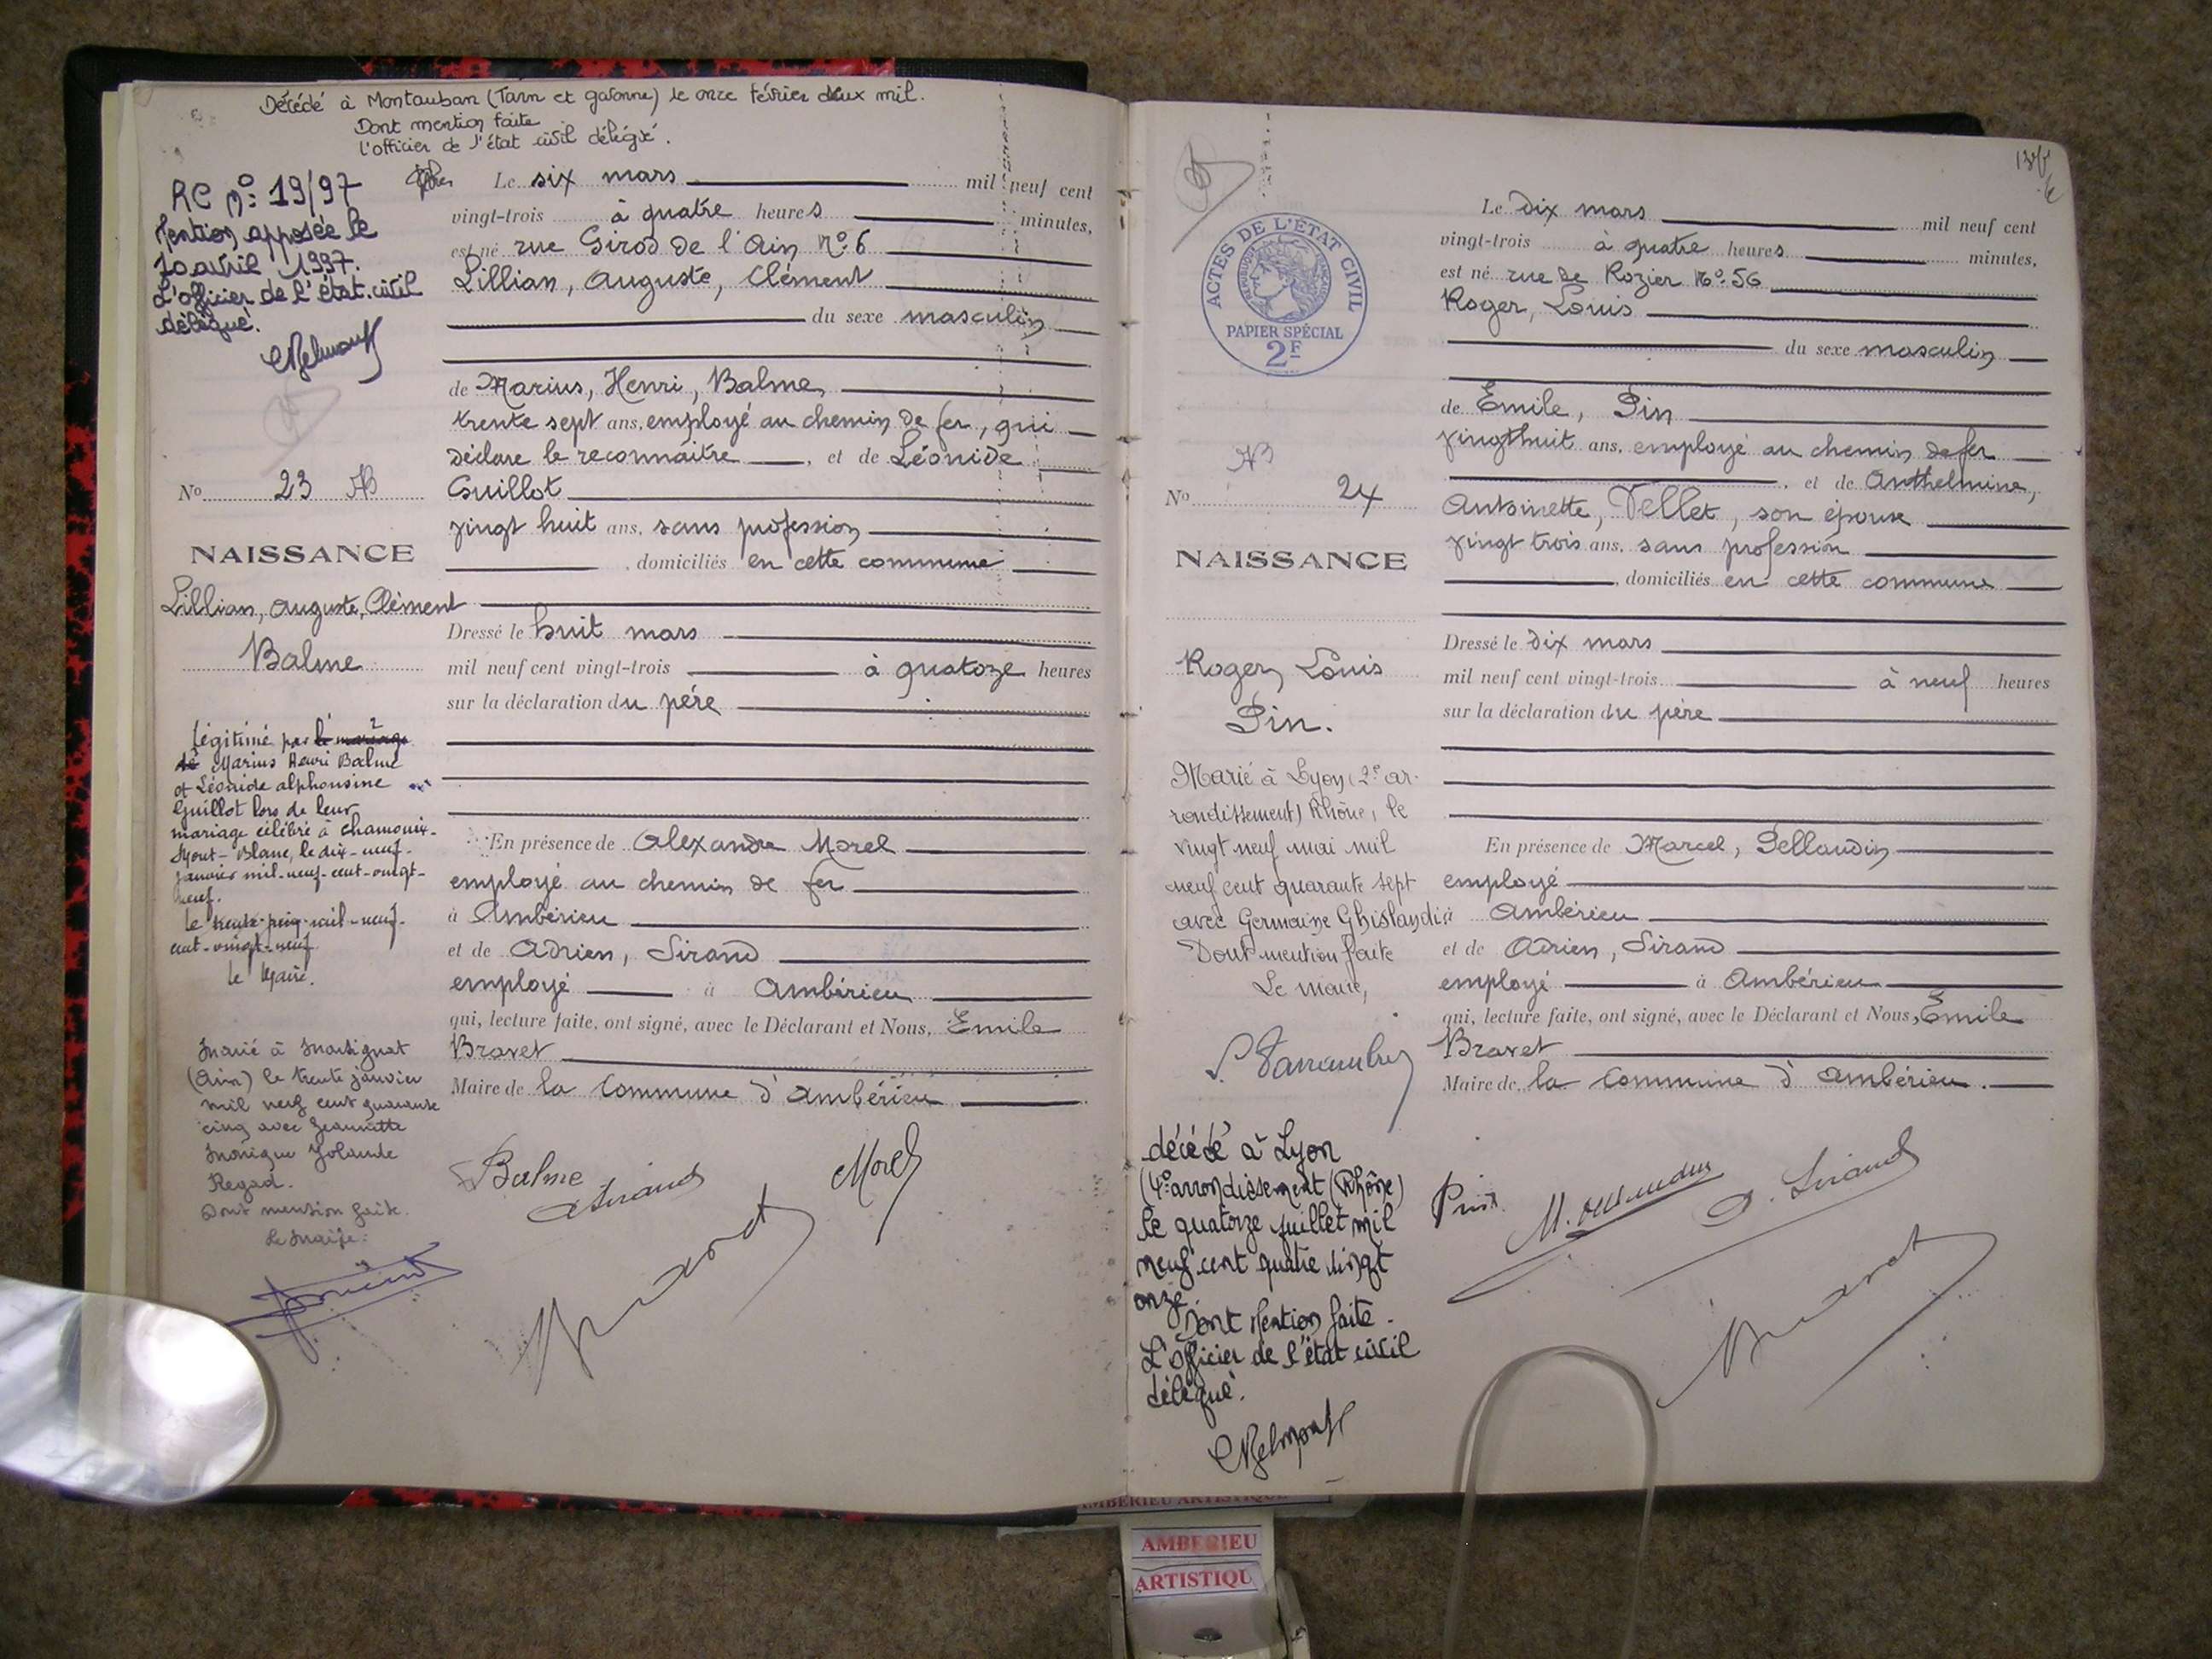 Décédé à Montauban (Tarn et garonne) le onze février deux mil.
Dont mention faite
l'officier de l'état civil délégué.
RC n°: 19/97
Mention apposée le
10 avril 1997.
L'officier de l'état civil
délégué.
No 23
NAISSANCE
Lillian, Auguste, Clément
Balme
Légitimé par le mariage
de Marius Henri Balme
et Léonide alphonsine
Guillot lors de leur
mariage célébré à Chamonix-
Mont-Blanc, le dix-neuf-
janvier mil-neuf-cent-vingt-
neuf.
Le mil-neuf-
cent-vingt-neuf
Le Maire.
Marié à Martignat
(Ain) le trente janvier
mil neuf cent quarante
cinq avec Jeannette
Monique Yolande
Regad.
Dont mention faite.
Le Maire:
Le six mars mil neuf cent
vingt-trois à quatre heures minutes,
est né rue Girod de l'Ain N°: 6
Lillian, Auguste, Clément
du sexe masculin
de Marius, Henri, Balme,
trente sept ans, employé au chemin de fer, qui
déclare le reconnaitre , et de Léonide
Guillot
vingt huit ans, sans profession
, domiciliés en cette commune
Dressé le huit mars
mil neuf cent vingt-trois à quatoze heures
sur la déclaration du père
En présence de Alexandre Morel
employé au chemin de fer
à Ambérieu
et de Adrien, Sirand
employé à Ambérieu
qui, lecture faite, ont signé, avec le Déclarant et Nous, Emile
Bravet
Maire de la Commune d'Ambérieu
Balme
Sirand
Morel
Bravet
ACTES DE L'ÉTAT CIVIL
RÉPUBLIQUE FRANÇAISE
PAPIER SPÉCIAL
2F
No 24
NAISSANCE
Roger, Louis
Pin.
Marié à Lyon (2e ar-
rondissement) Rhône, le
vingt neuf mai mil
neuf cent quarante sept
avec Germaine Ghislandi
Dont mention faite
Le maire,
décédé à Lyon
(4e arrondissement (Rhône)
le quatorze juillet mil
neuf cent quatre vingt
onze.
Dont Mention faite.
L'officier de l'état civil
délégué.
Le Dix mars mil neuf cent
vingt-trois à quatre heures minutes,
est né rue de Rozier N°: 56
Roger, Louis
du sexe masculin
de Emile, Pin
vingthuit ans, employé au chemin de fer
, et de Anthelmine,
Antoinette, Vellet, son épouse
vingt trois ans, sans profession
, domiciliés en cette commune
Dressé le dix mars
mil neuf cent vingt-trois à neuf heures
sur la déclaration du père
En présence de Marcel, Pellaudin
employé
à Ambérieu
et de Adrien, Sirand
employé à Ambérieu
qui, lecture faite, ont signé, avec le Déclarant et Nous, Emile
Bravet
Maire de la Commune d'Ambérieu.
Pin
A. Sirand
Bravet
AMBERIEU ARTISTIQUE
AMBERIEU
ARTISTIQU